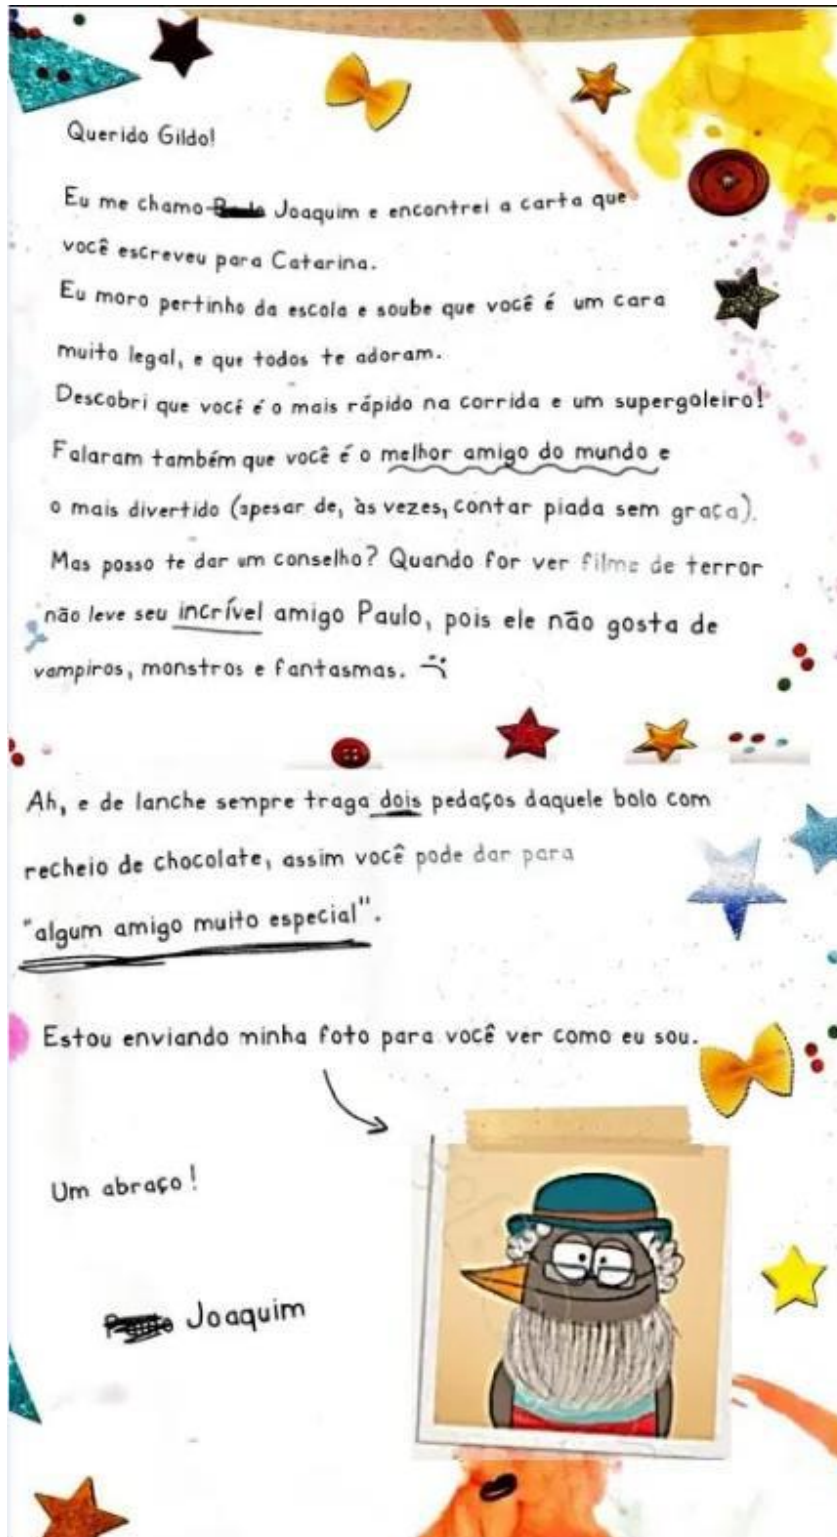 Querido Gildo!
Eu me chamo Joaquim e encontrei a carta que
você escreveu para Catarina.
Eu moro pertinho da escola e soube que você é um cara
muito legal, e que todos te adoram.
Descobri que você é o mais rápido na corrida e um supergoleiro!
Falaram também que você é o melhor amigo do mundo e
o mais divertido (apesar de, às vezes, contar piada sem graça).
Mas posso te dar um conselho? Quando for ver filme de terror
não leve seu incrível amigo Paulo, pois ele não gosta de
vampiros, monstros e fantasmas.
Ah, e de lanche sempre traga dois pedaços daquele bolo com
recheio de chocolate, assim você pode dar para
"algum amigo muito especial".
Estou enviando minha foto para você ver como eu sou.
Um abraço!
Joaquim